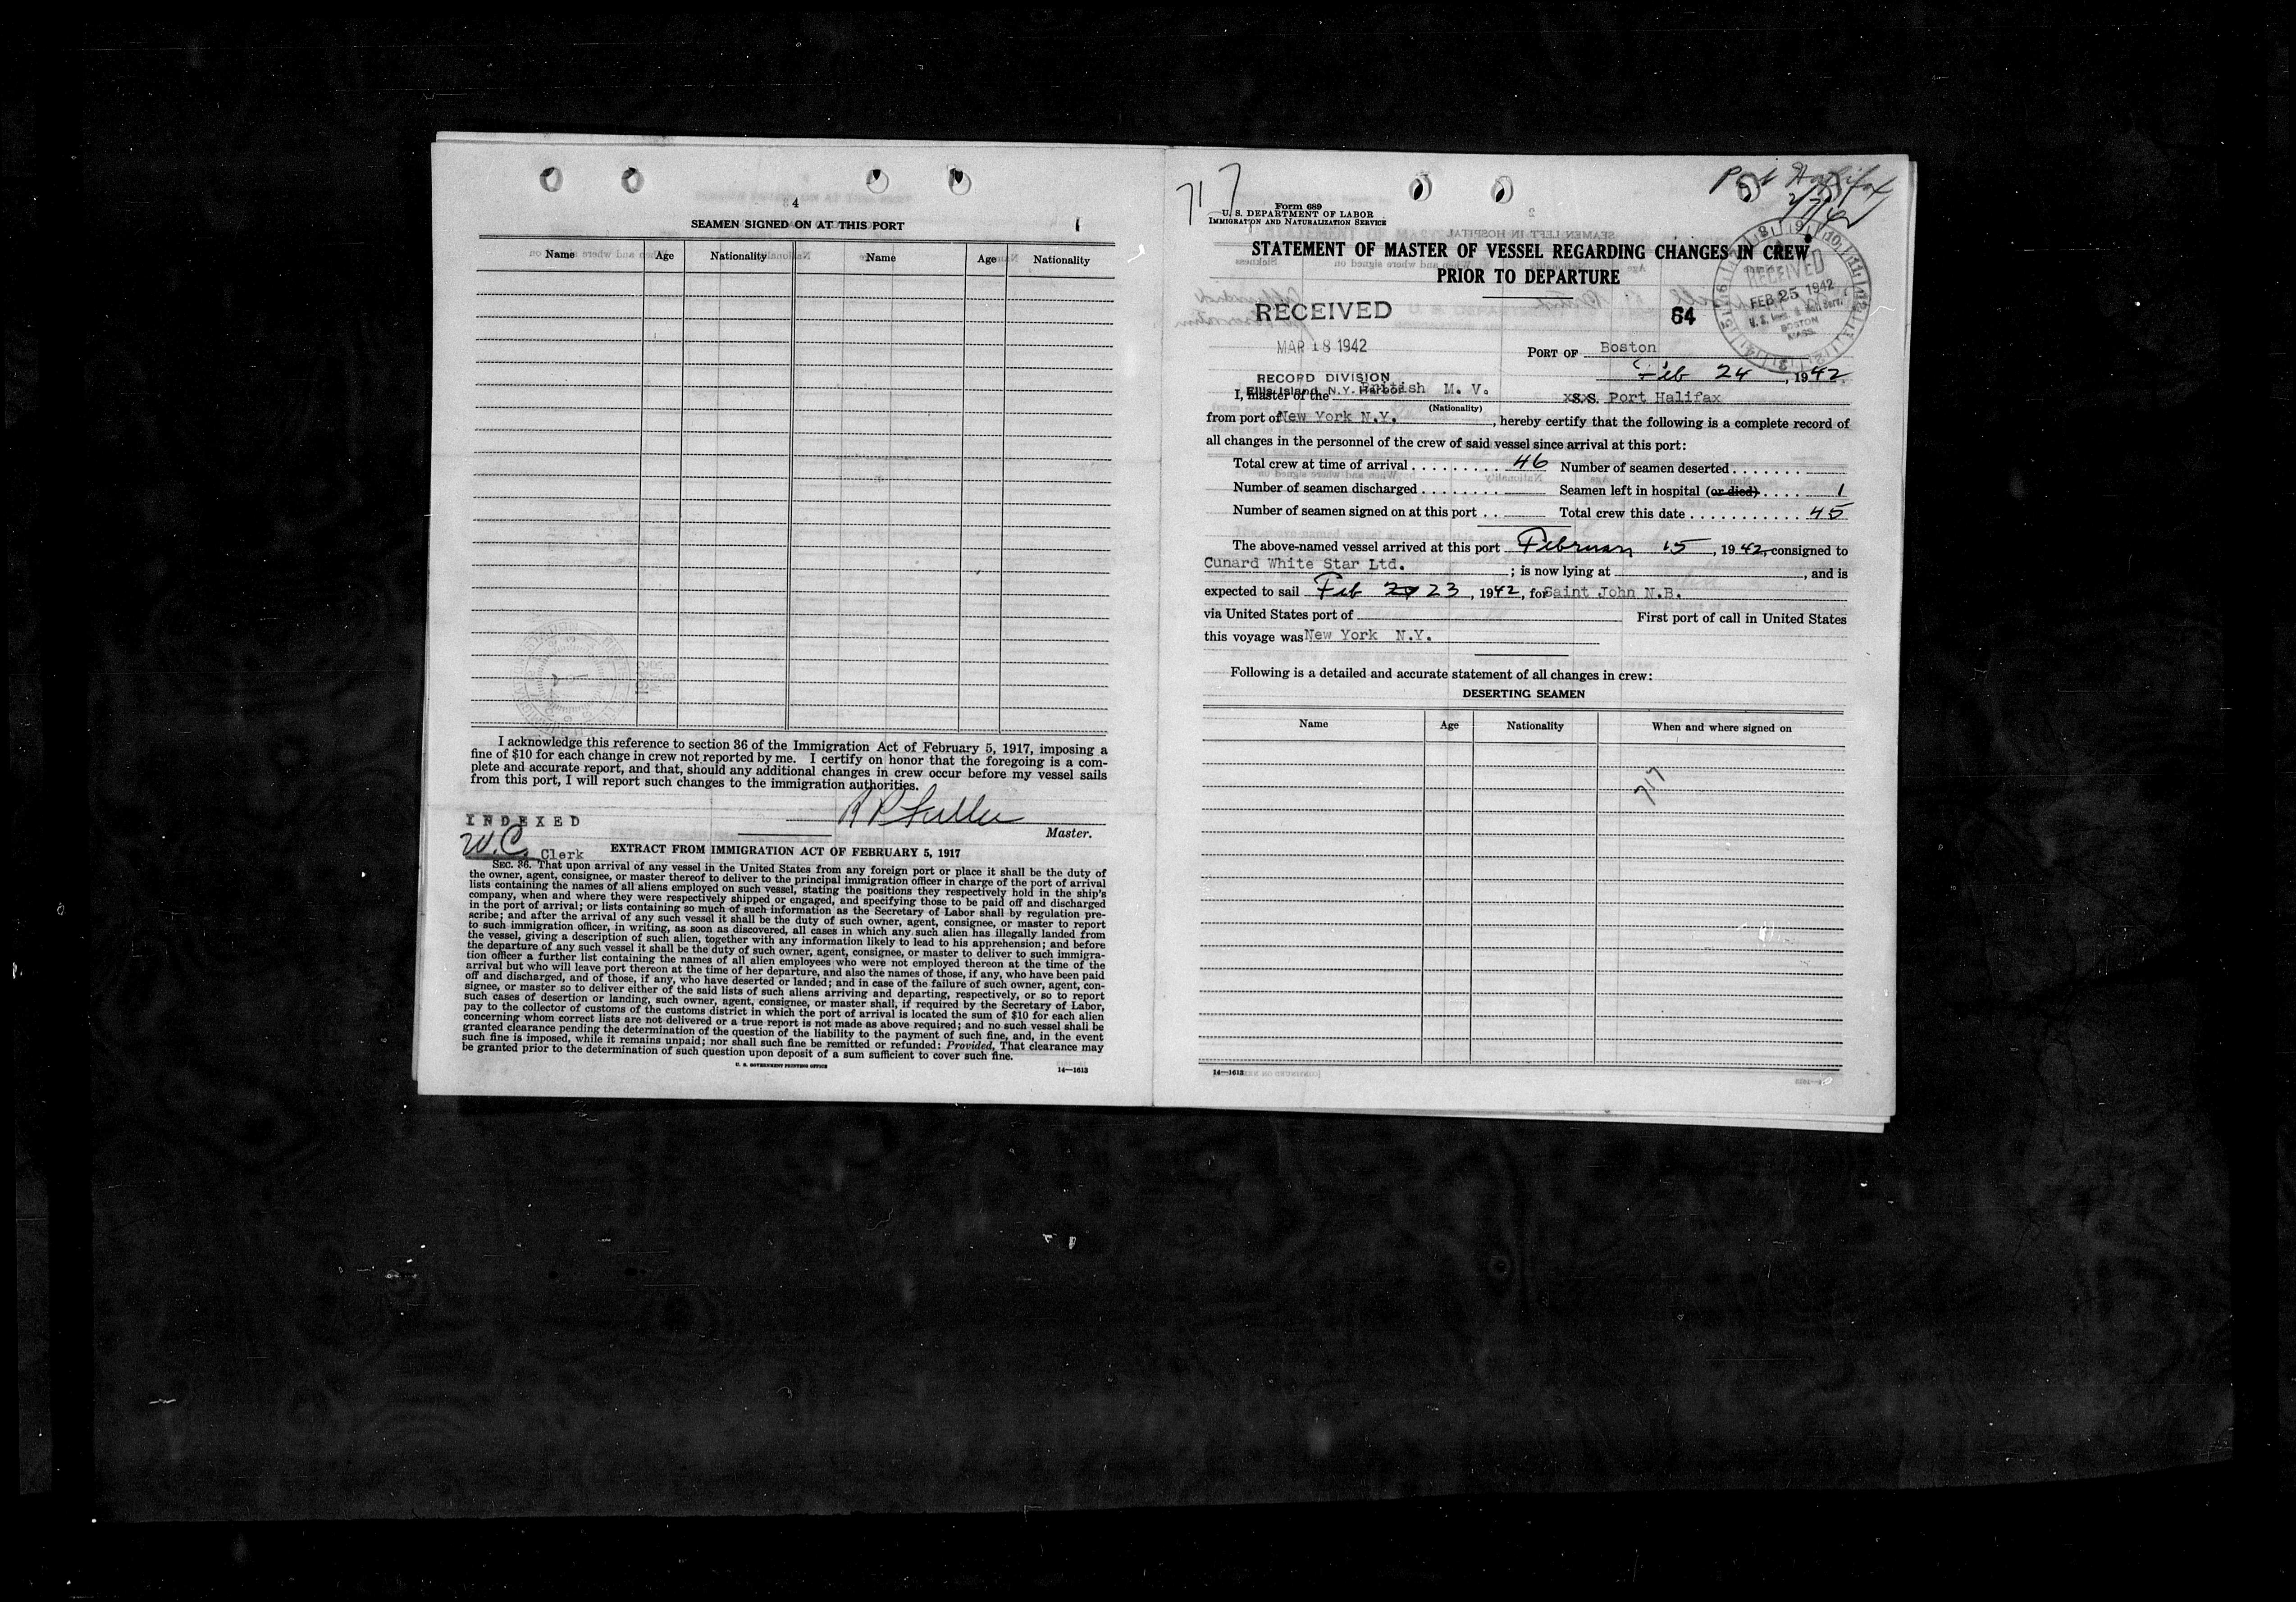 4
SEAMEN SIGNED ON AT THIS PORT
1
Name Age Nationality Name Age Nationality
I acknowledge this reference to section 36 of the Immigration Act of February 5, 1917, imposing a
fine of $10 for each change in crew not reported by me. I certify on honor that the foregoing is a com-
plete and accurate report, and that, should any additional changes in crew occur before my vessel sails
from this port, I will report such changes to the immigration authorities.
Master.
INDEXED
W.C. Clerk
EXTRACT FROM IMMIGRATION ACT OF FEBRUARY 5, 1917
SEC. 36. That upon arrival of any vessel in the United States from any foreign port or place it shall be the duty of
the owner, agent, consignee, or master thereof to deliver to the principal immigration officer in charge of the port of arrival
lists containing the names of all aliens employed on such vessel, stating the positions they respectively hold in the ship's
company, when and where they were respectively shipped or engaged, and specifying those to be paid off and discharged
in the port of arrival; or lists containing so much of such information as the Secretary of Labor shall by regulation pre-
scribe; and after the arrival of any such vessel it shall be the duty of such owner, agent, consignee, or master to report
to such immigration officer, in writing, as soon as discovered, all cases in which any such alien has illegally landed from
the vessel, giving a description of such alien, together with any information likely to lead to his apprehension; and before
the departure of any such vessel it shall be the duty of such owner, agent, consignee, or master to deliver to such immigra-
tion officer a further list containing the names of all alien employees who were not employed thereon at the time of the
arrival but who will leave port thereon at the time of her departure, and also the names of those, if any, who have been paid
off and discharged, and of those, if any, who have deserted or landed; and in case of the failure of such owner, agent, con-
signee, or master so to deliver either of the said lists of such aliens arriving and departing, respectively, or so to report
such cases of desertion or landing, such owner, agent, consignee, or master shall, if required by the Secretary of Labor,
pay to the collector of customs of the customs district in which the port of arrival is located the sum of $10 for each alien
concerning whom correct lists are not delivered or a true report is not made as above required; and no such vessel shall be
granted clearance pending the determination of the question of the liability to the payment of such fine, and, in the event
such fine is imposed, while it remains unpaid; nor shall such fine be remitted or refunded: Provided, That clearance may
be granted prior to the determination of such question upon deposit of a sum sufficient to cover such fine.
U. S. GOVERNMENT PRINTING OFFICE
14—1613
717
Port Halifax
Form 689
U. S. DEPARTMENT OF LABOR
IMMIGRATION AND NATURALIZATION SERVICE
STATEMENT OF MASTER OF VESSEL REGARDING CHANGES IN CREW
PRIOR TO DEPARTURE
RECEIVED
FEB 25 1942
BOSTON
MASS.
RECEIVED
64
MAR 18 1942
PORT OF Boston
Feb 24, 1942
RECORD DIVISION
Ellis Island, N.Y. Harbor
I, master of the British M. V. S.S. Port Halifax
(Nationality)
from port of New York N.Y., hereby certify that the following is a complete record of
all changes in the personnel of the crew of said vessel since arrival at this port:
Total crew at time of arrival 46 Number of seamen deserted
Number of seamen discharged Seamen left in hospital (or died) 1
Number of seamen signed on at this port Total crew this date 45
The above-named vessel arrived at this port February 15, 1942, consigned to
Cunard White Star Ltd. ; is now lying at , and is
expected to sail Feb 23, 1942, for Saint John N.B.
via United States port of First port of call in United States
this voyage was New York N.Y.
Following is a detailed and accurate statement of all changes in crew:
DESERTING SEAMEN
Name Age Nationality When and where signed on
717
14—1613